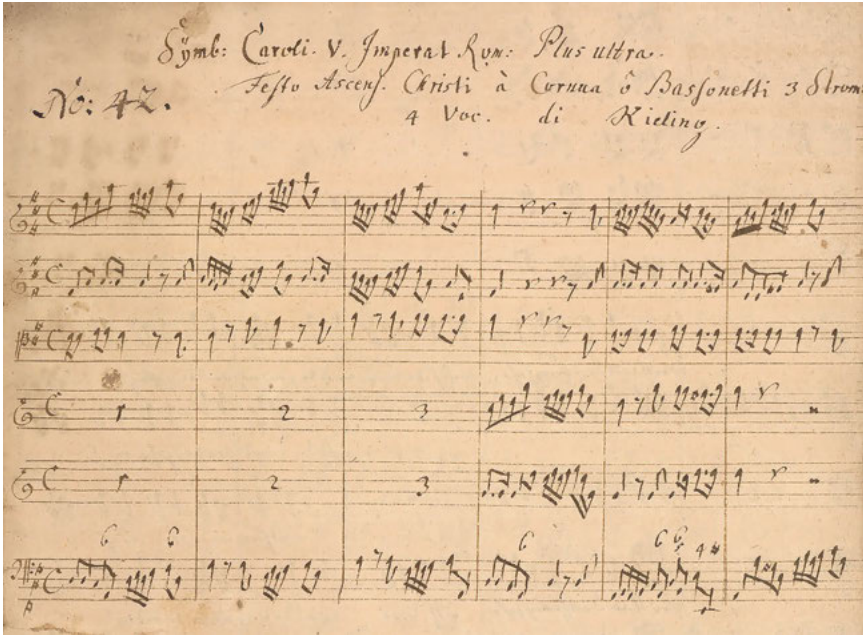 Symb: Caroli. V. Imperat Rom: Plus ultra.
No: 42.
Festo Ascens. Christi à Cornua ô Bassonetti 3 Strom
4 Voc. di Kieling.
2 3
2 3
6 6 6 6 6 4 #